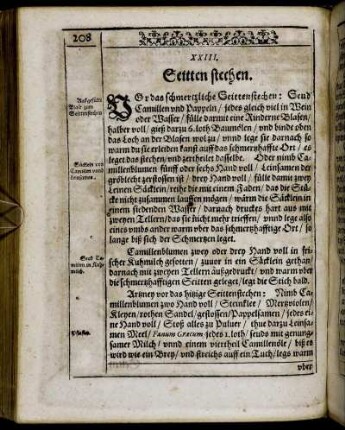 208
XXIII.
Seitten stechen.
VOr das schmertzliche Seittenstechen: Seud
Camillen und Pappeln / jedes gleich viel in Wein
oder Wasser / fülle darmit eine Rinderne Blasen /
halber voll / gieß darzu 6. loth Baumölen / und binde oben
das Loch an der Blasen wol zu / unnd lege sie darnach so
warm du sie erleiden kanst auff das schmertzhaffte Ort / es
leget das stechen / und zertheilet dasselbe. Oder nimb Ca-
millenblumen fünff oder sechs Hand voll / Leinsamen der
gröblecht zerstossen ist / drey Hand voll / fülle darmit zwey
Leinen Säcklein / reihe die mit einem Faden / das die Stü-
cke nicht zusammen lauffen mögen / wärm die Säcklein in
einem siedenden Wasser / darnach drucks hart aus mit
zweyen Tellern / das sie nicht mehr trieffen / unnd lege also
eines umbs ander warm uber das schmertzhafftige Ort / so
lange biß sich der Schmertzen leget.
Camillenblumen zwey oder drey Hand voll in fri-
scher Kuhmilch gesotten / zuvor in ein Säcklein gethan /
darnach mit zweyen Tellern außgedruckt / und warm uber
die schmertzhafftigen Seitten geleget / legt die Stich bald.
Artzney vor das hitzige Seittenstechen: Nimb Ca-
millenblumen zwo Hand voll / Steinklee /
Kleyen / rothen Sandel / gestossen / Pappelsamen / jedes ei-
ne Hand voll / Stoß alles zu Pulver / thue darzu Leinsa-
men Meel / Fænum Græcum jedes 1. loth / seuds mit genung-
samer Milch / unnd einem viertheil Camillenöle / biß es
wird wie ein Brey / und streichs auff ein Tuch / legs warm
uber